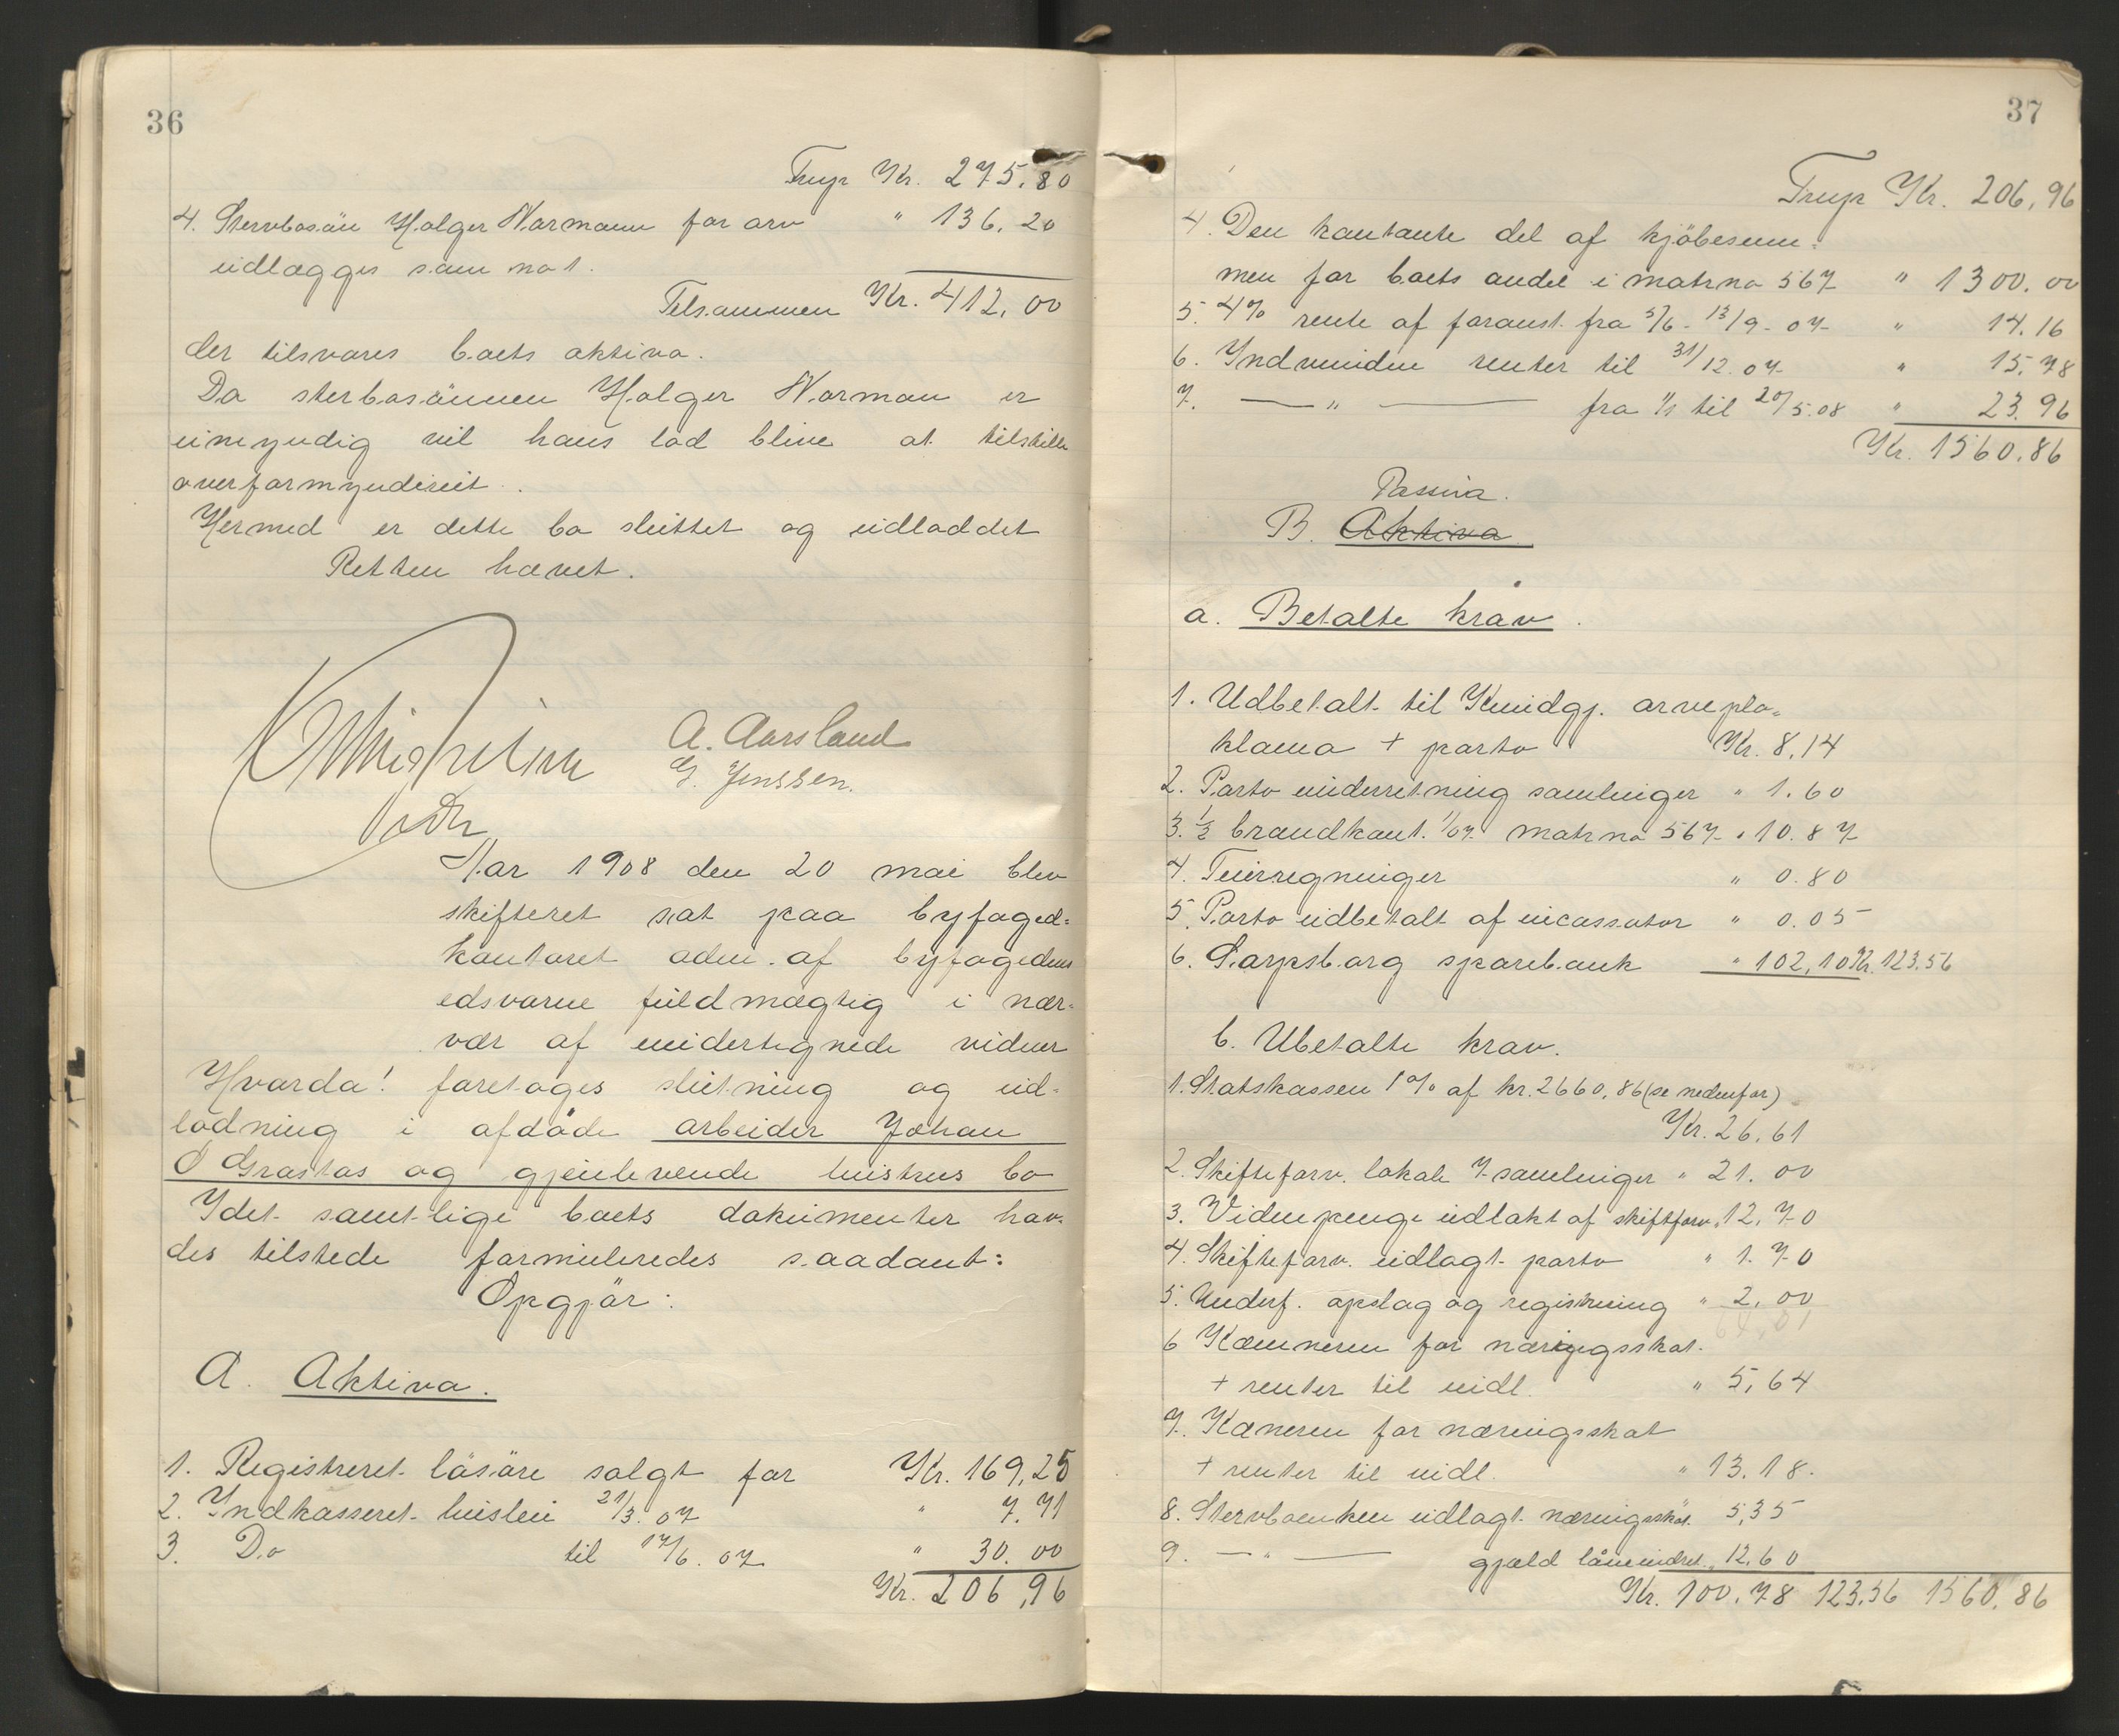 36
Trnpr Kr. 275.80
4. Stervbosön Holger Norman for arv " 136.20
udlægges som no 1.
Tilsammen Kr. 412,00
der tilsvares boets aktiva.
Da sterbosönnen Holger Norman er
umyndig vil hans lod blive at tilstille
overformynderiet.
Hermed er dette bo sluttet og udloddet
Retten hævet.
A. Aarsland
G. Jenssen.
Aar 1908 den 20 mai blev
skifteret sat paa byfoged=
kontoret adm. af byfogedens
edsvorne fuldmægtig i nær=
vær af undertegnede vidner
Hvorda! foretoges slutning og ud=
lodning i afdöde arbeider Johan
O Grastas og gjenlevende hustrus bo
Idet samtlige boets dokumenter hav=
des tilstede formuleredes saadant:
Opgjör:
A. Aktiva.
1. Registreret lösöre solgt for Kr. 169,25
2. Indkasseret husleie 21/3.07 " 7.71
3. Do til 17/6.07 " 30.00
Kr. 206,96
37
Trnpr Kr. 206,96
4. Den kontante del af kjöbesum=
men for boets andel i matrno 567 " 1300.00
5. 4% rente af foranst. fra 5/6 - 13/9 - 07 " 14.16
6. Indvundne renter til 31/12.07 " 15.78
7. — " — fra 1/1 til 20/5.08 " 23.96
Kr. 1560.86
Passiva.
B. Aktiva
a. Betalte krav.
1. Udbetalt til Kundgj. arvepro=
klama + porto Kr. 8,14
2. Porto underretning samlinger " 1.60
3. 1/2 brandkont. 1/07 matrno 567 " 10.87
4. Turregninger " 0.80
5. Porto udbetalt af incassator " 0.05
6. Sarpsborg sparebank " 102,10 Kr. 123.56
b. Ubetalte krav.
1. Statskassen 1% af kr. 2660,86 (se nedenfor)
Kr. 26,61
2. Skifteforv. lokale 7 samlinger " 21.00
3. Vidnepenge udlakt af skiftforv. 12,70
4. Skifteforv. udlagt porto " 1.70
5. Underf. opslag og registrering " 2,00
6 Kæmneren for næringsskat.
+ renter til udl. " 5,64
7. Kæneren for næringsskat
+ renter til udl. " 13.18.
8. Stervboenken udlagt næringsskat 5,35
9. — " — gjæld 12,60
Kr. 100.78 123,56 1560.86